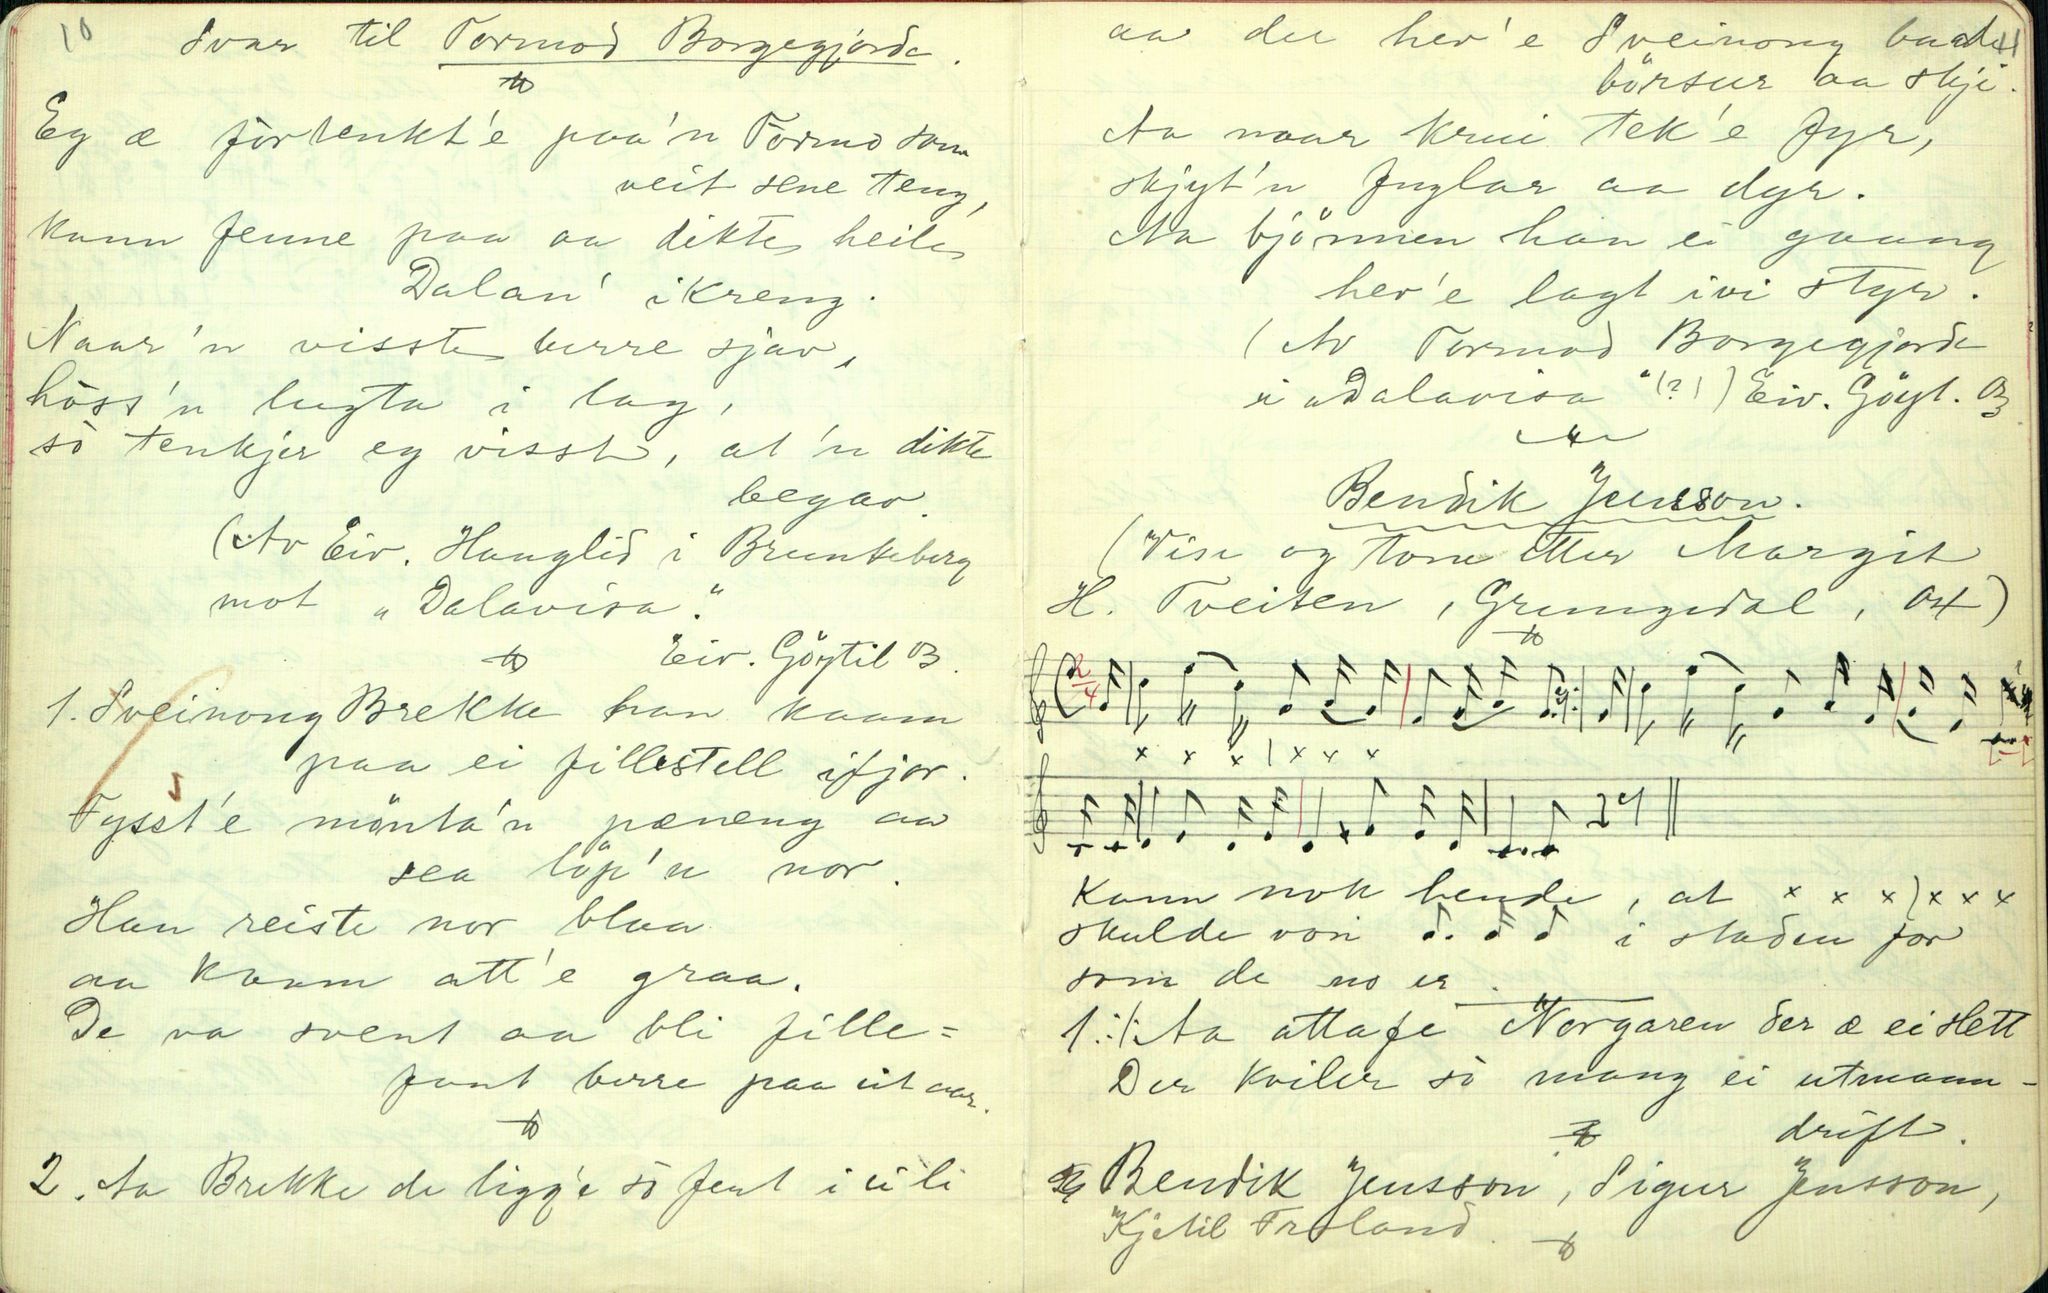 10
Svar til Tormod Borgegjorde.
Eg æ fortenkt'e paa'n Tormo som
veit sene teng,
kann fenne paa aa dikte heile
Dalan' ikreng.
Naar'n visste berre sjav,
höss'n lugta i lag,
sò tenkjer eg visst, at'n dikte
begav.
(Av Eiv. Hauglid i Brunkeberg
mot "Dalavisa".
Eiv. Göytil 03.
1. Sveinong Brekke han kaam
paa ei fillestell ifjor.
Fysst'e mönta'n pæneng aa
sea löp'n nor.
Han reiste nor blaa
aa kaam att'e graa.
De va svent aa bli fille=
fant berre paa eit aar.
2. Aa Brekke de ligg'e sò fent i ei li
11
aa der her'e Sveinong baade
börsur aa skji.
Aa naar krui tek'e fyr,
skjyt'n fuglar aa dyr.
Aa bjönnen han ei gaang
her'e lagt ivi styr.
(Av Tormod Borgegjorde
i "Dalavisa" (?)) Eiv. Göyt. 03
Bendik Jensson.
(Vise og tone etter Margit
H. Tveiten, Grungedal, 04)
2/4
x x x | x x x
Kann nok hende, at x x x | x x x
skulde vori i staden for
som de no er.
1. :/: Aa attafe Norgaren der æ ei slett
Der kviler sò mang ei utmann-
drift.
Bendik Jensson, Sigur Jensson,
Kjetil Froland.